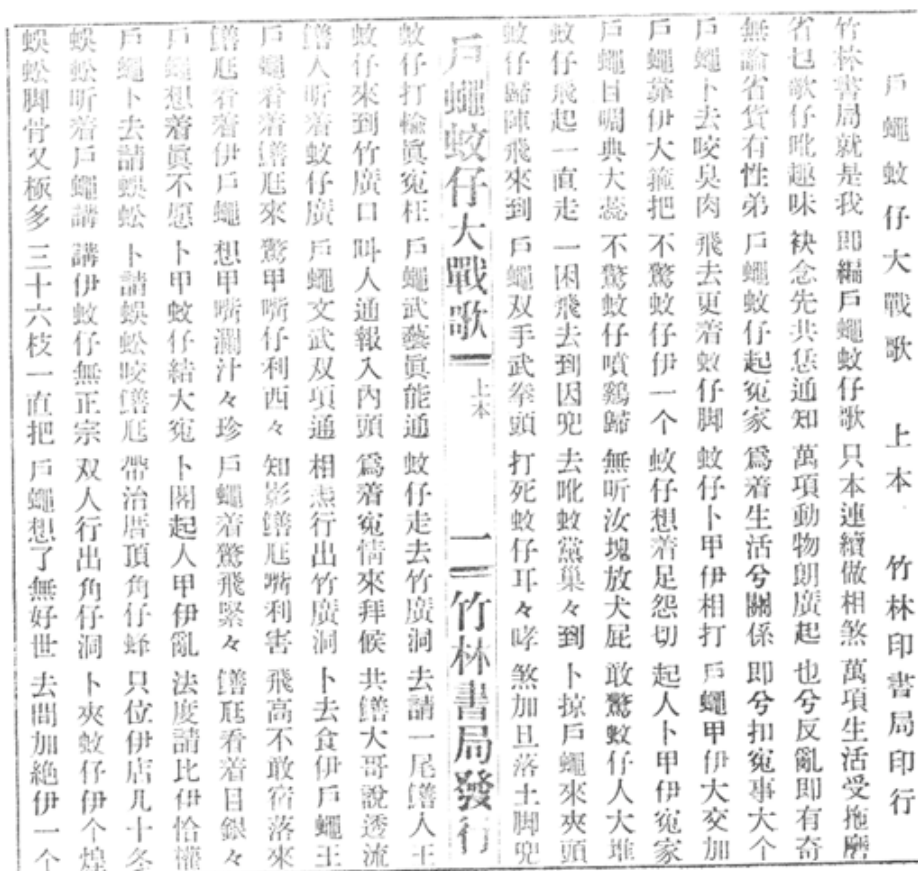 戶蠅蚊仔大戰歌 上本 竹林印書局印行
竹林書局就是我 即編戶蠅蚊仔歌 只本連續做相煞 萬項生活受拖磨
省乜歌仔吪趣味 袂念先共恁通知 萬項動物朗廣起 也兮反亂即有奇
無論省貨有性弟 戶蠅蚊仔起冤家 爲着生活兮關係 即兮扣冤事大个
戶蠅卜去咬臭肉 飛去更着蚊仔脚 蚊仔卜甲伊相打 戶蠅甲伊大交加
戶蠅靠伊大箍把 不驚蚊仔伊一个 蚊仔想着足怨切 起人卜甲伊冤家
戶蠅目睭典大蕊 不驚蚊仔噴鷄歸 無听汝塊放犬屁 敢驚蚊仔人大堆
蚊仔飛起一直走 一困飛去到因兜 去吪蚊黨巢々到 卜掠戶蠅來夾頭
蚊仔歸陣飛來到 戶蠅双手武拳頭 打死蚊仔耳々哮 煞加旦落土脚兜
戶蠅蚊仔大戰歌 上本 一 竹林書局發行
蚊仔打輸眞冤枉 戶蠅武藝眞能通 蚊仔走去竹廣洞 去請一尾鱔人王
蚊仔來到竹廣口 叫人通報入內頭 爲着冤情來拜候 共鱔大哥說透流
鱔人听着蚊仔廣 戶蠅文武双項通 相焘行出竹廣洞 卜去食伊戶蠅王
戶蠅看着鱔尫來 驚甲嘴仔利西々 知影鱔尫嘴利害 飛高不敢宿落來
鱔尫看着伊戶蠅 想甲嘴瀾汁々珍 戶蠅着驚飛緊々 鱔尫看着目銀々
戶蠅想着眞不愿 卜甲蚊仔結大冤 卜閣起人甲伊亂 法度請比伊恰權
戶蠅卜去請蜈蚣 卜請蜈蚣咬鱔尫 帶治厝頂角仔蜂 只位伊店几十冬
蜈蚣听着戶蠅講 講伊蚊仔無正宗 双人行出角仔洞 卜夾蚊仔伊个煌
蜈蚣脚骨又極多 三十六枝一直把 戶蠅想了無好世 去間加絶伊一个